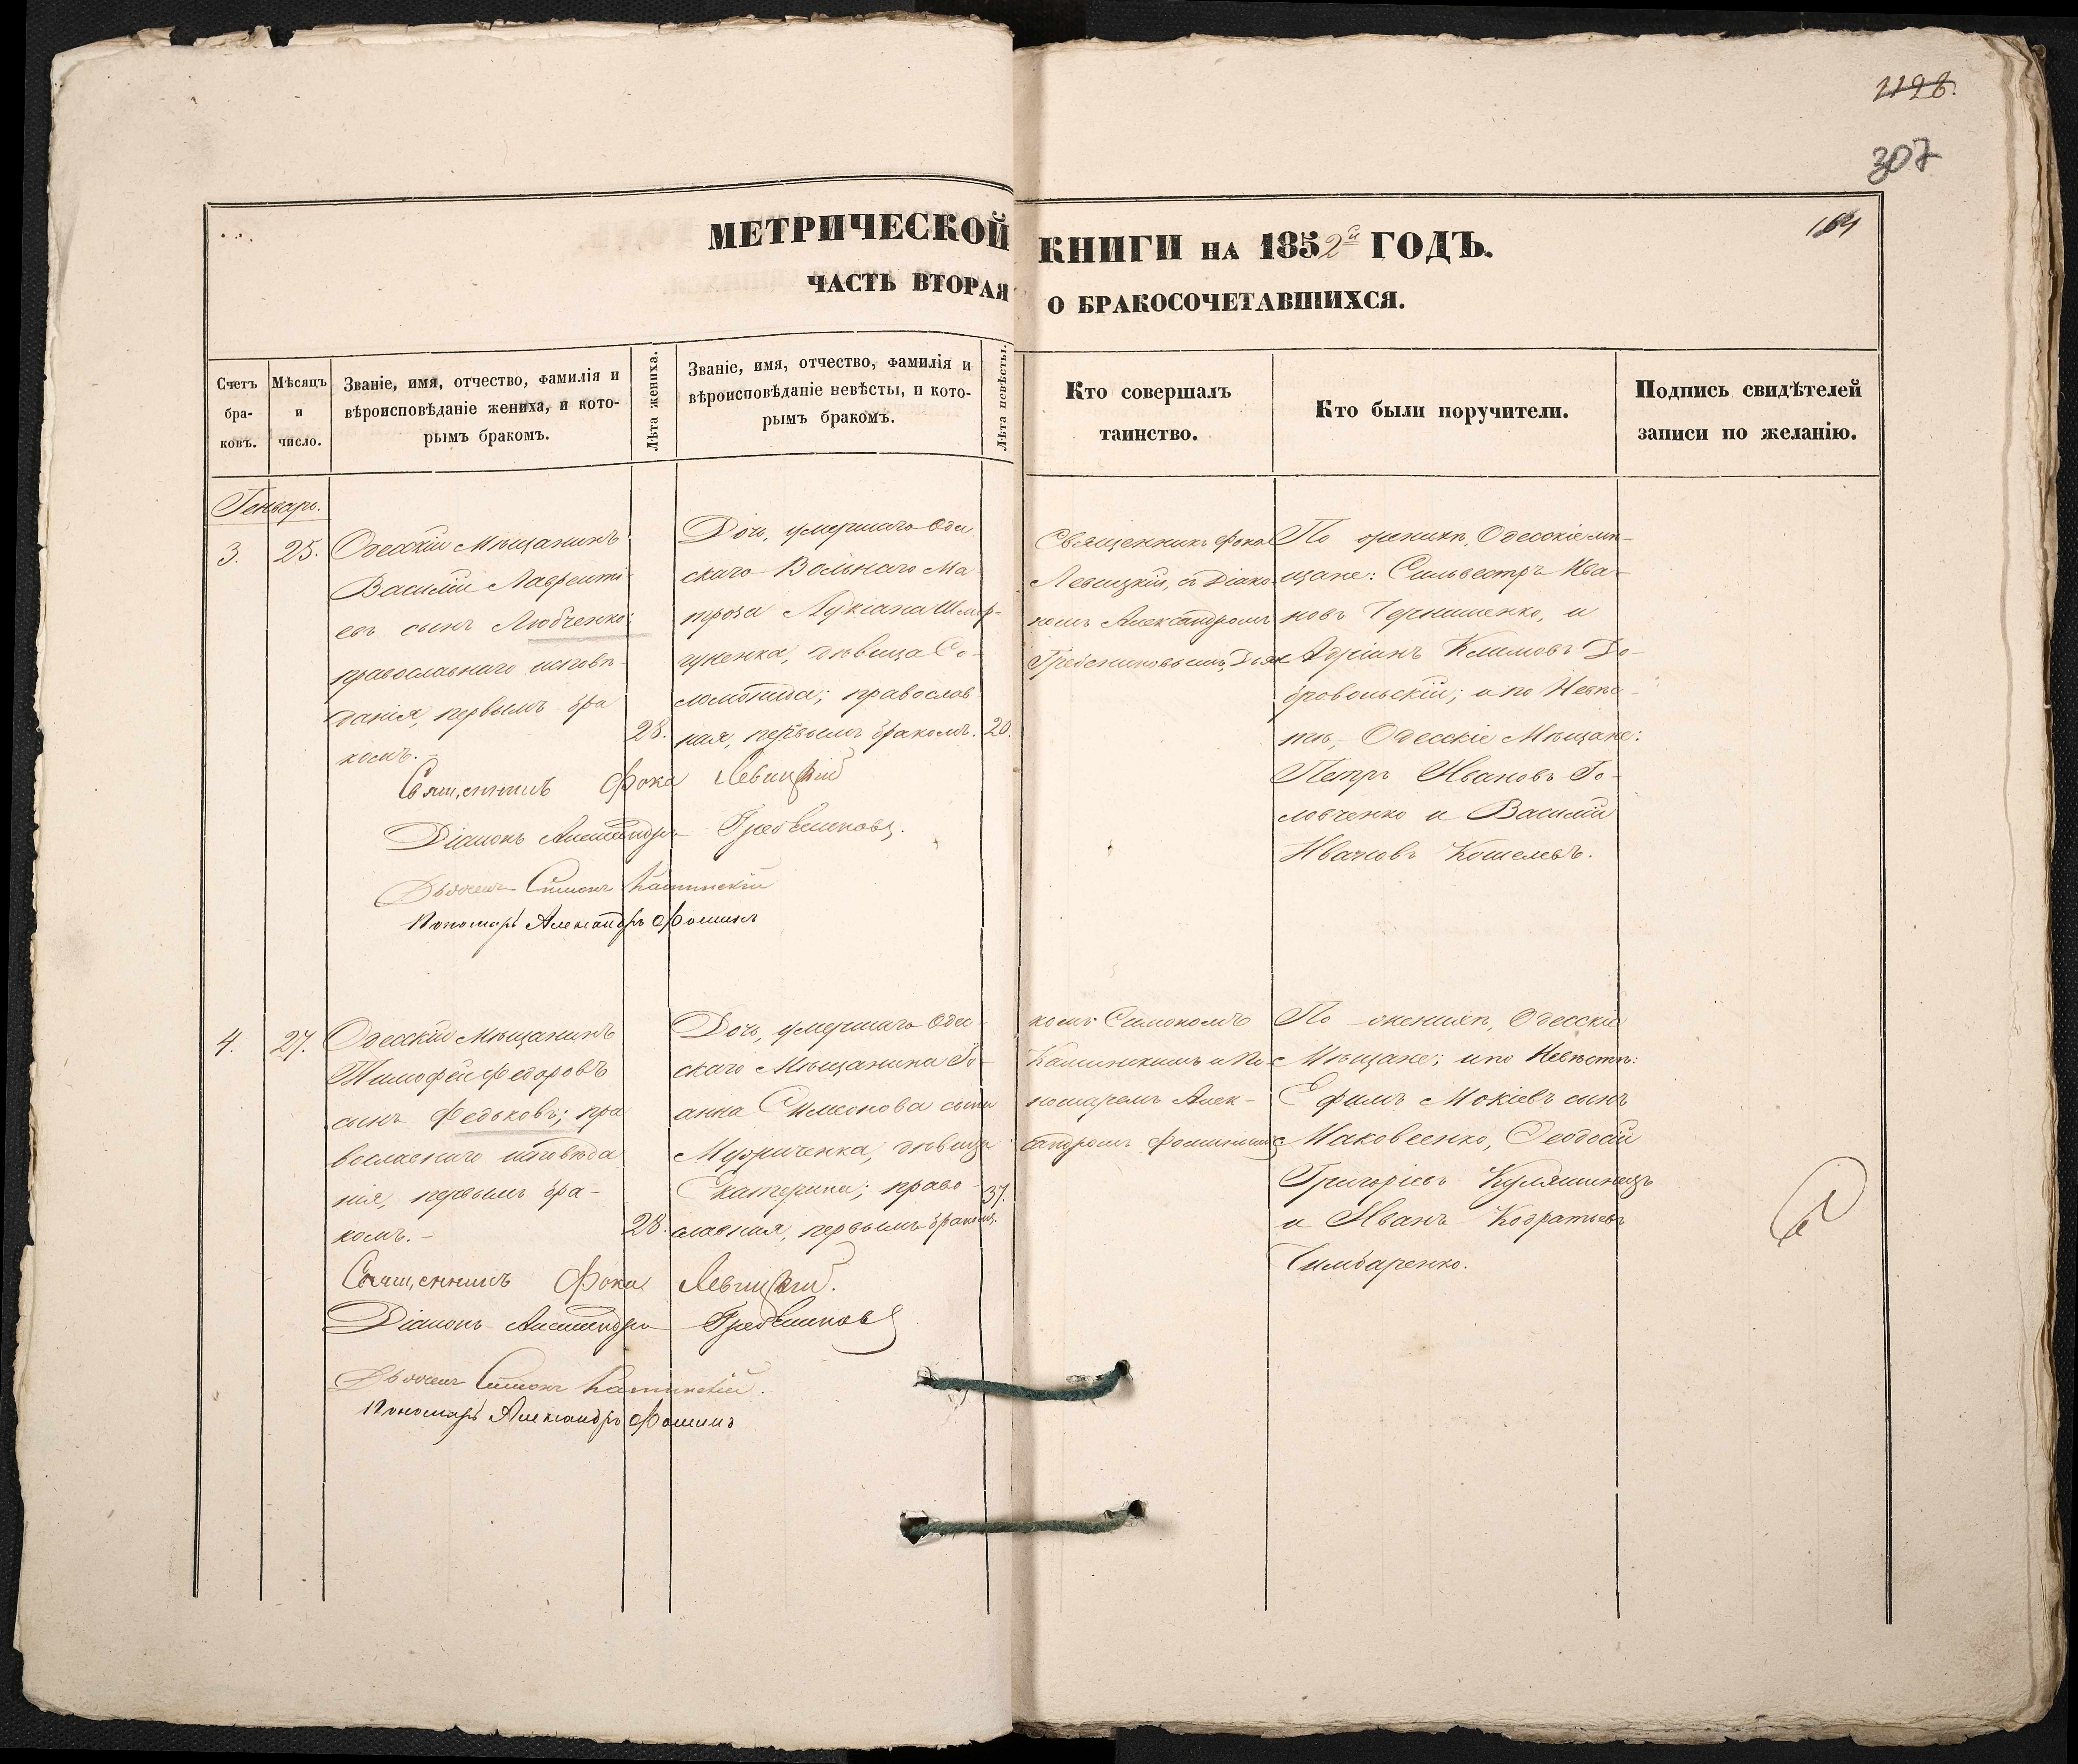 1128.
307
164
МЕТРИЧЕСКОЙ КНИГИ НА 1852й ГОДЪ.
ЧАСТЬ ВТОРАЯ О БРАКОСОЧЕТАВШИХСЯ.
Счетъ
бра-
ковъ.
Мѣсяцъ
и
число.
Званіе, имя, отчество, фамилія и
вѣроисповѣданіе жениха, и кото-
рымъ бракомъ.
Лѣта жениха.
Званіе, имя, отчество, фамилія и
вѣроисповѣданіе невѣсты, и кото-
рымъ бракомъ.
Лѣта невѣсты.
Кто совершалъ
таинство.
Кто были поручители.
Подпись свидѣтелей
записи по желанію.
Генварь.
3.
25.
Одесскій Мѣщанинъ
Василій Лаврентi-
евъ сынъ Любченко;
православнаго исповѣ-
данія, первымъ бра
комъ.-
28.
Дочь, умершаго Оде
скаго Вольнаго Ма
троза Лукіана
гуненка, дѣвица Со-
ломонида; православ
ная, первымъ бракомъ.
20.
Священникъ Фока
Левицкій, съ Діако-
номъ Александромъ
Гребениковымъ, Дьяч
По женихѣ, Одесскіе мѣ-
щане: Сильвестръ Ива-
новъ Чернишенко, и
Адріанъ Климовъ До-
бровольскій; и по Невѣс-
тѣ, Одесскіе Мѣщане:
Петръ Ивановъ Го-
ловченко и Василій
Ивановъ Кошелевъ.
Священникъ Фока Левицкій
Діаконъ Александръ Гребениковъ.
Дьячекъ Симонъ Каминскій
Пономарь Александръ Фоминъ
4.
27.
Одесскій Мѣщанинъ
Тимофей Федоровъ
сынъ Федьковъ; пра
вославнаго исповѣда
нія, первымъ бра-
комъ.-
28.
Дочь, умершаго Оде-
скаго Мѣщанина Іо-
анна Симеонова сына
дѣвица
Екатерина; право-
славная, первымъ бракомъ.
37.
комъ Симономъ
Каминскимъ и По-
номаремъ Алек-
сандромъ Фоминымъ
По женихѣ, Одесскіе
Мѣщане; и по Невѣстѣ:
Ефимъ Мокіевъ сынъ
Маковеенко, Ѳеодосій
Григоріевъ
и Иванъ Кодратьевъ
Чимбаренко.
Священникъ Фока Левицкій.
Діаконъ Александръ Гребениковъ
Дьячекъ Симонъ Каминскій.
Пономарь Александръ Фоминъ